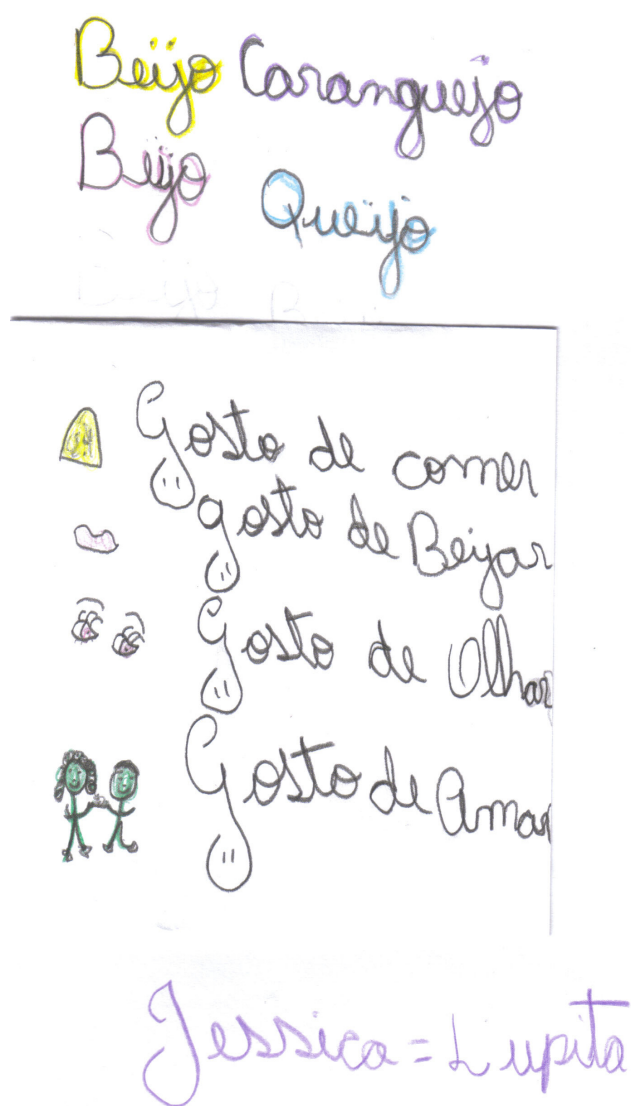 Beijo Caranguejo
Beijo Queijo
Gosto de comer
gosto de Beijar
Gosto de Olhar
Gosto de Amar
Jessica = Lupita